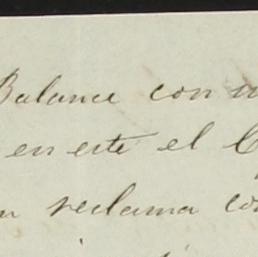 Balance con
en este el
reclama